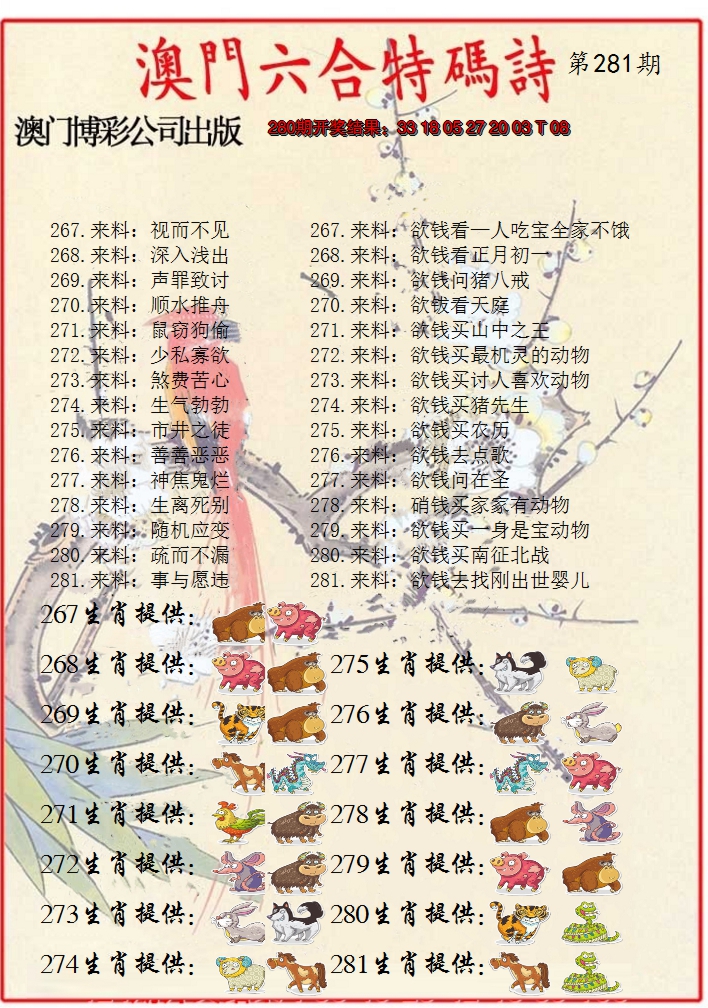 澳門六合特碼詩 第281期
澳门博彩公司出版 280期开奖结果：33 18 05 27 20 03 T 08
267.来料：视而不见 267.来料：欲钱看一人吃宝全家不饿
268.来料：深入浅出 268.来料：欲钱看正月初一
269.来料：声罪致讨 269.来料：欲钱问猪八戒
270.来料：顺水推舟 270.来料：欲钱看天庭
271.来料：鼠窃狗偷 271.来料：欲钱买山中之王
272.来料：少私寡欲 272.来料：欲钱买最机灵的动物
273.来料：煞费苦心 273.来料：欲钱买讨人喜欢动物
274.来料：生气勃勃 274.来料：欲钱买猪先生
275.来料：市井之徒 275.来料：欲钱买农历
276.来料：善善恶恶 276.来料：欲钱去点歌
277.来料：神焦鬼烂 277.来料：欲钱问在圣
278.来料：生离死别 278.来料：硝钱买家家有动物
279.来料：随机应变 279.来料：欲钱买一身是宝动物
280.来料：疏而不漏 280.来料：欲钱买南征北战
281.来料：事与愿违 281.来料：欲钱去找刚出世婴儿
267生肖提供：
268生肖提供： 275生肖提供：
269生肖提供： 276生肖提供：
270生肖提供： 277生肖提供：
271生肖提供： 278生肖提供：
272生肖提供： 279生肖提供：
273生肖提供： 280生肖提供：
274生肖提供： 281生肖提供：